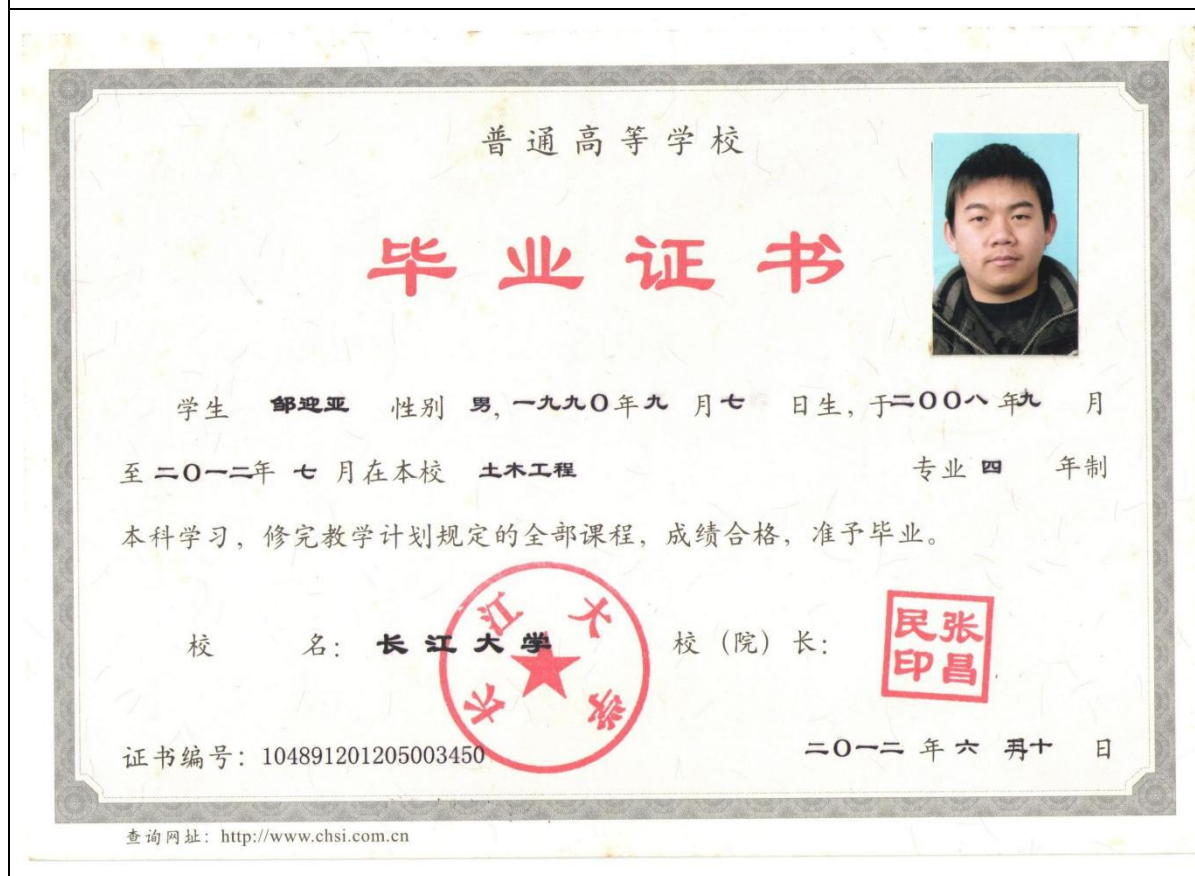 普通高等学校
毕业证书
学生 邹迎亚 性别 男,一九九〇年九 月七 日生,于二〇〇八 年九 月
至二〇一二年 七 月在本校 土木工程 专业 四 年制
本科学习,修完教学计划规定的全部课程,成绩合格,准予毕业。
校 名: 长江大学 校(院)长:
长江大学
张昌民印
证书编号:104891201205003450 二〇一二 年 六 月 十 日
查询网址:http://www.chsi.com.cn